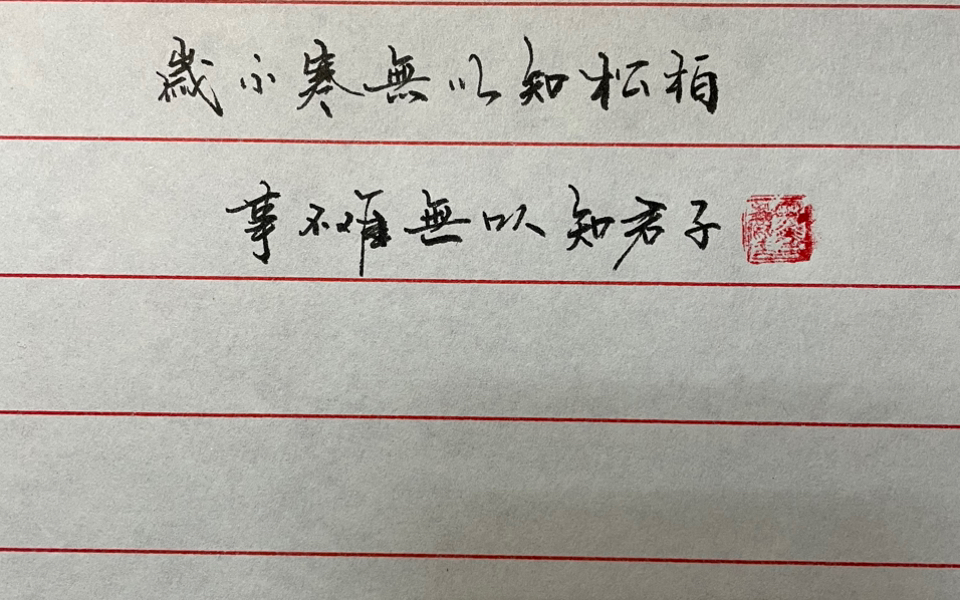 歲不寒無以知松柏
事不難無以知君子